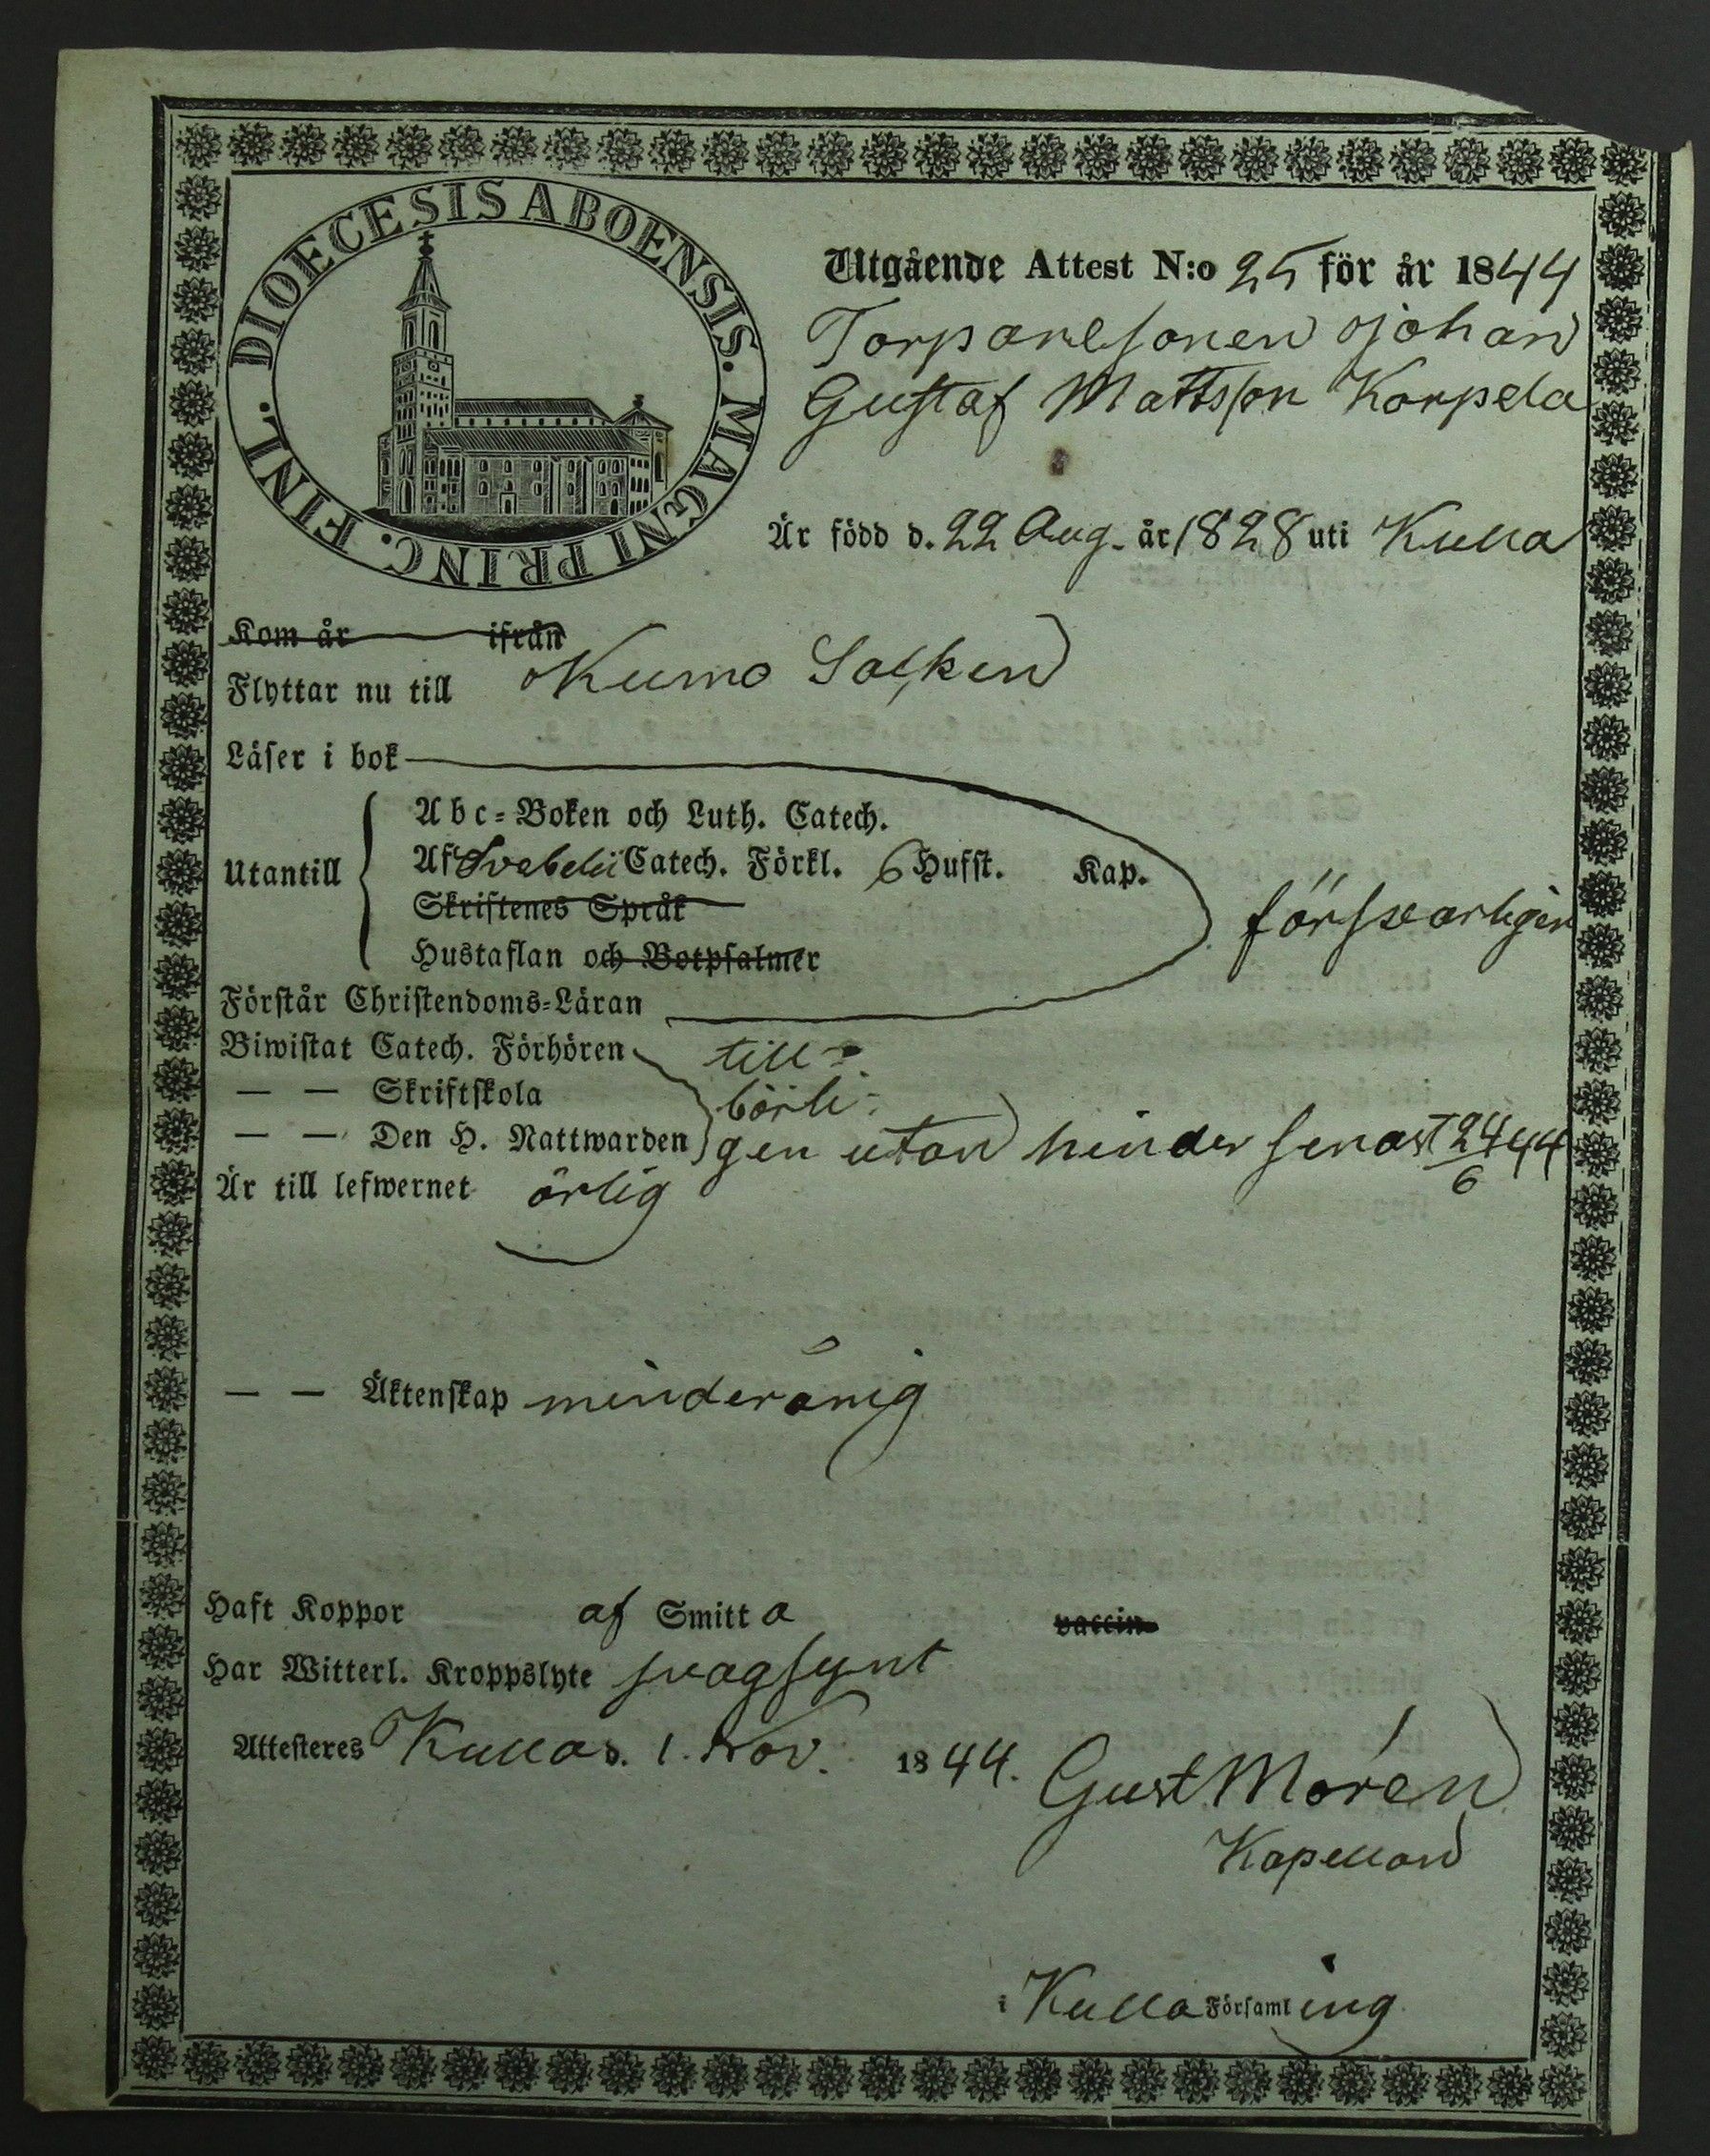 DIOECESIS ABOENSIS. MAGNI PRINC. FINL.
Utgående Attest N:o 25 för år 1844
Torparesonen Johan
Gustaf Mattsson Korpela
Är född d. 22 Aug. år 1828 uti Kulla
Kom år ifrån
Flyttar nu till Kumo Socken
Läser i bok
Abc-Boken och Luth. Catech.
Utantill Af Svebelii Catech. Förkl. 6 Hufst. Kap.
Skriftenes Språk
försvarligen
Hustaflan och Botpsalmer
Förstår Christendoms-Läran
Biwistat Catech. Förhören till-
— — Skriftskola börli-
— — Den H. Nattwarden gen utan hinder senast 24/6 44
Är till lefwernet ärlig
— — Äktenskap minderårig
Haft Koppor af Smitta vaccin
Har Witterl. Kroppslyte svagsynt
Attesteres Kulla d. 1. Nov. 1844. Gust Morén
Kapellan
i Kulla Församling